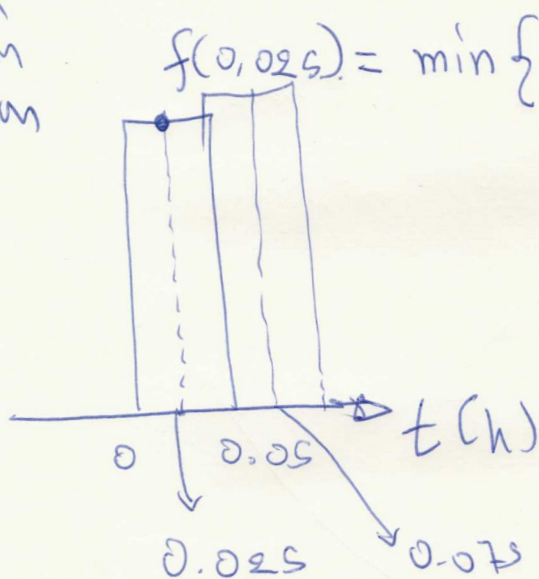 f(0,025) = min {
t(h)
0 0.05
0.025 0.075